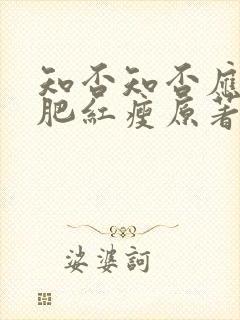 知否知否應
肥紅瘦原著
娑婆訶